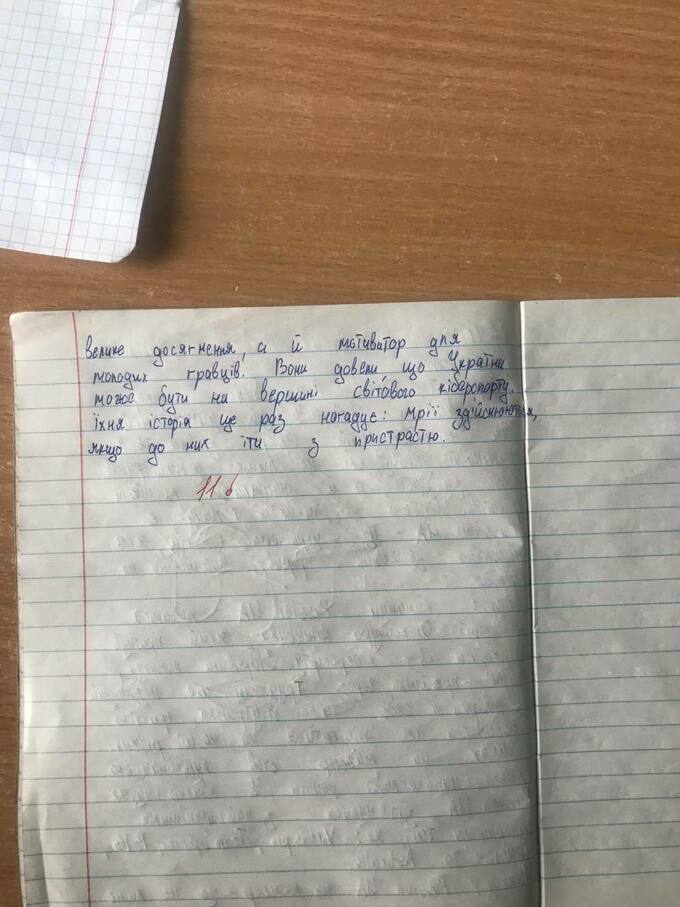 велике досягнення, а й мотиватор для
молодих гравців. Вони довели, що Україна
може бути на вершині світового кіберспорту.
їхня історія ще раз нагадує: мрії здійснюються,
якщо до них іти з пристрастю.
11 б